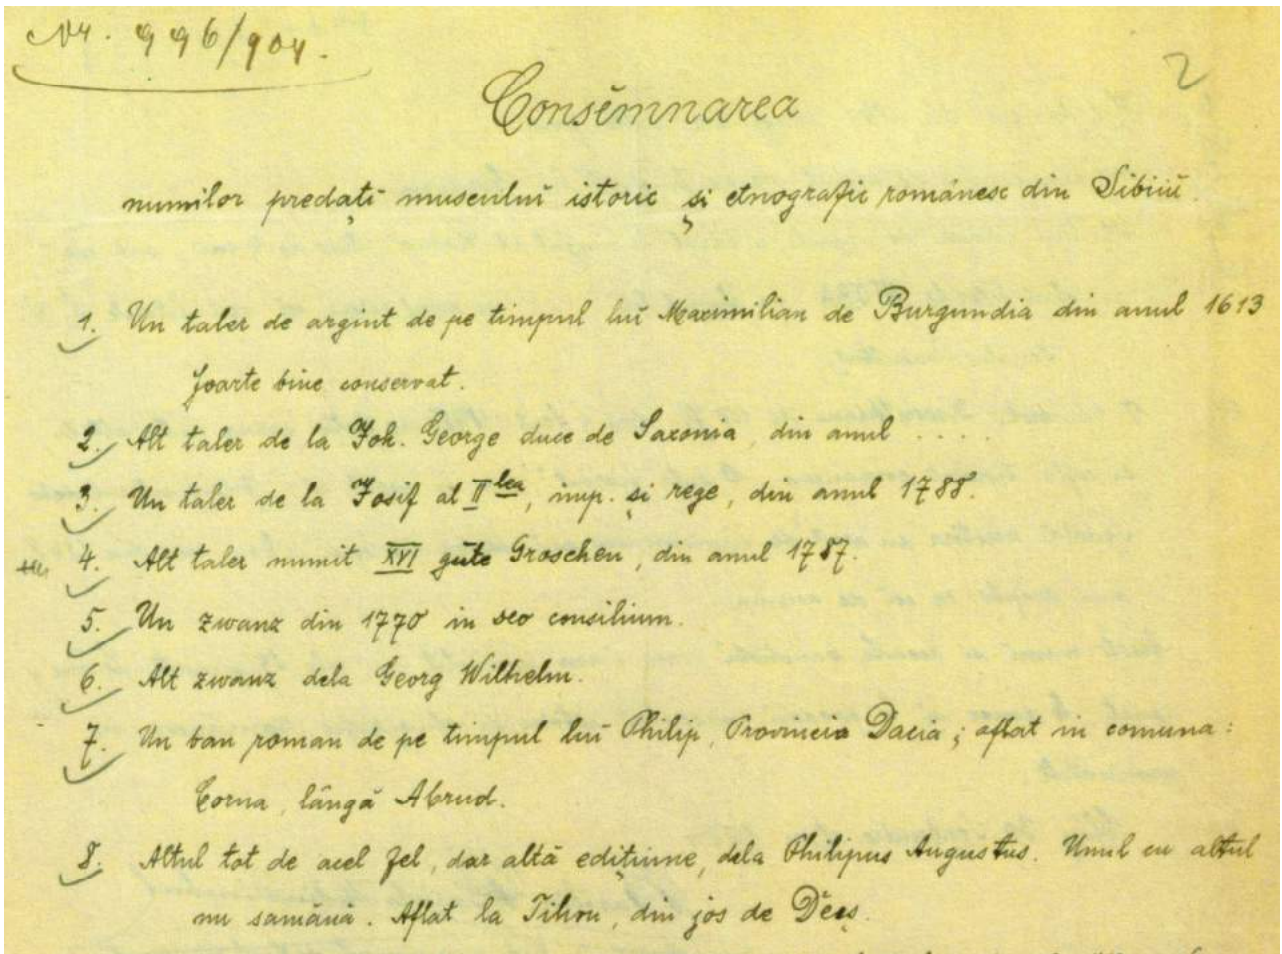 Nr. 996/904.
2
Consĕmnarea
numilor predați museului istoric și etnografic românesc din Sibiiŭ.
1. Un taler de argint de pe timpul luĭ Maximilian de Burgundia din anul 1613
foarte bine conservat.
2. Alt taler de la Joh. George duce de Saxonia, din anul .....
3. Un taler de la Iosif al II lea, imp. și rege, din anul 1788.
4. Alt taler numit XVI gute Groschen, din anul 1787.
5. Un zwanz din 1770 in deo consilium.
6. Alt zwanz dela Georg Wilhelm.
7. Un ban roman de pe timpul luĭ Philip, Provincia Dacia; aflat in comuna:
Corna, lângă Abrud.
8. Altul tot de acel fel, dar altă edițiune, dela Philipus Augustus. Unul cu altul
nu samănă. Aflat la Tihou, din jos de Deeș.